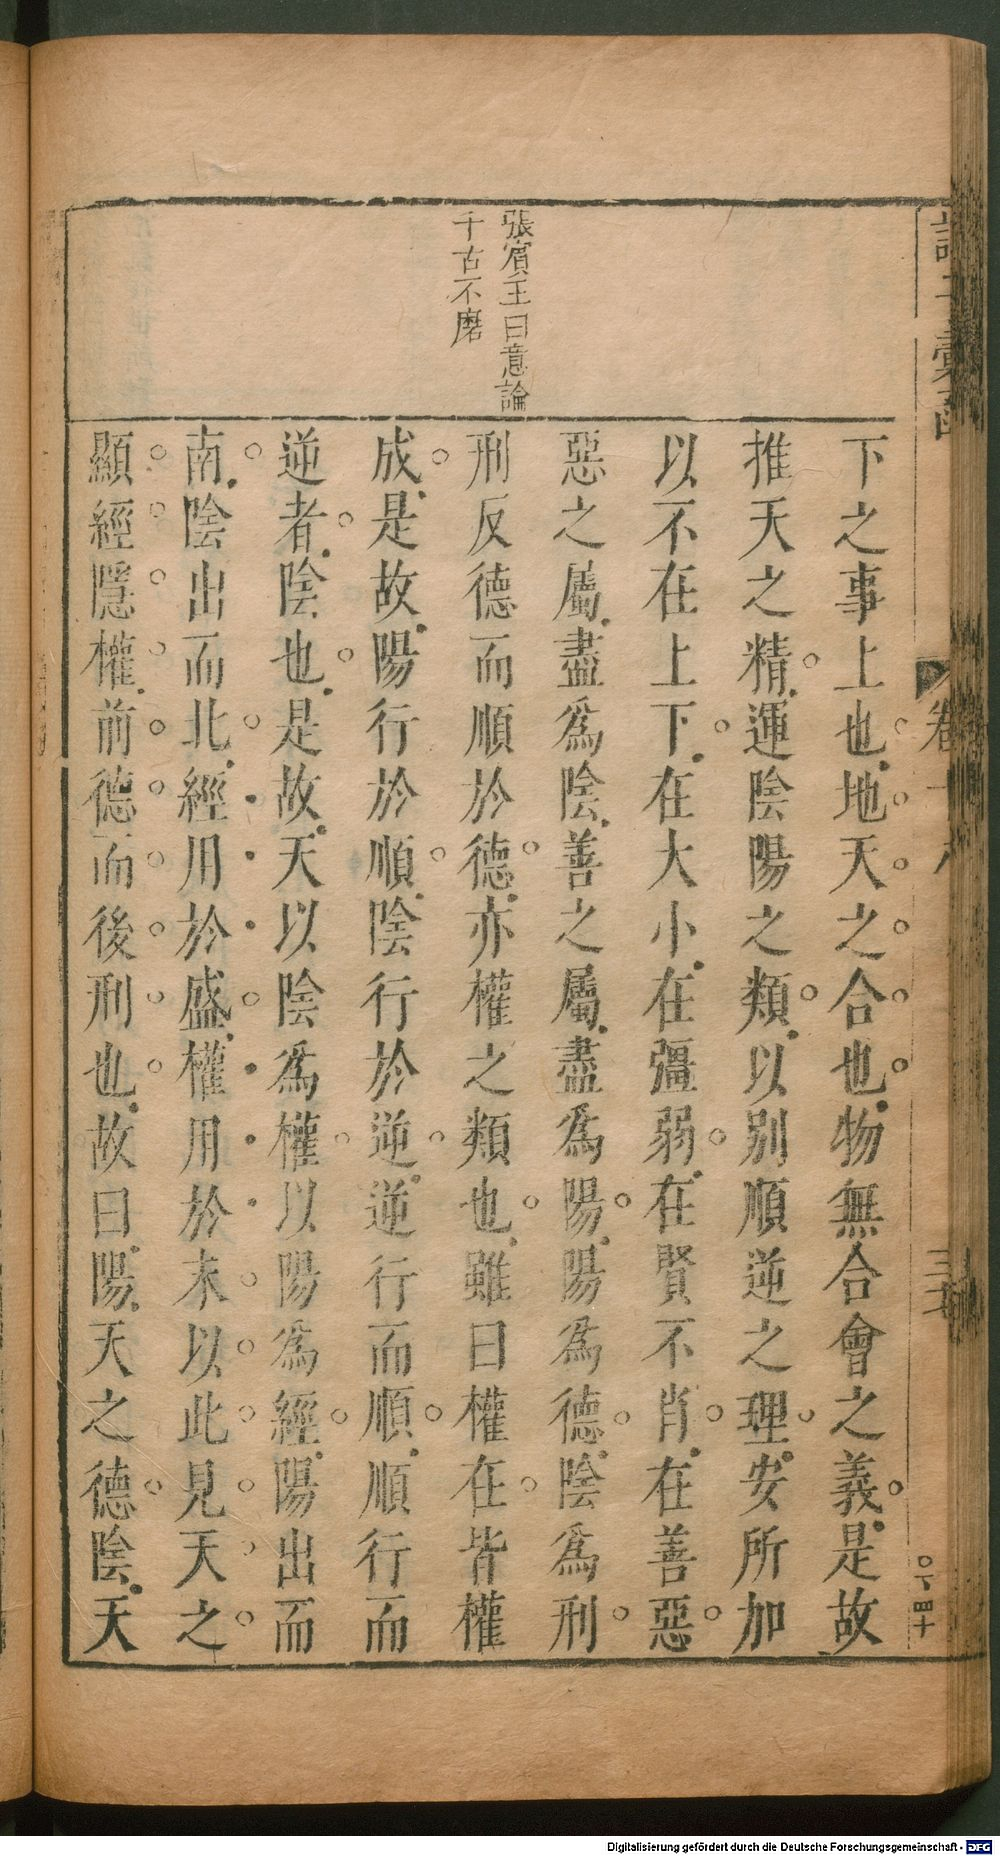 張賓王曰意論
千古不磨
下之事上也地天之合也物無合會之義是故
推天之精運陰陽之類以別順逆之理安所加
以不在上下在大小在彊弱在賢不肖在善惡
惡之屬盡爲陰善之屬盡爲陽陽爲德陰爲刑
刑反德而順於德亦權之類也雖曰權在皆權
成是故陽行於順陰行於逆逆行而順順行而
逆者陰也是故天以陰爲權以陽爲經陽出而
南陰出而北經用於盛權用於末以此見天之
顯經隱權前德而後刑也故曰陽天之德陰天
Digitalisierung gefördert durch die Deutsche Forschungsgemeinschaft - DFG